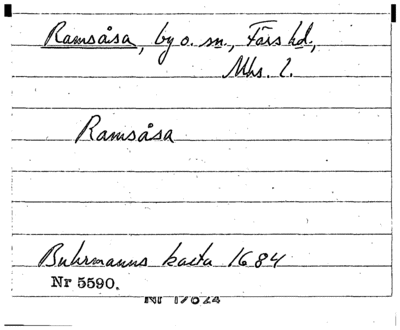 Ramsåsa, by o. sn., Färs hd.,
Mhs. l.
Ramsåsa
Buhrmanns karta 1684
Nr 5590.